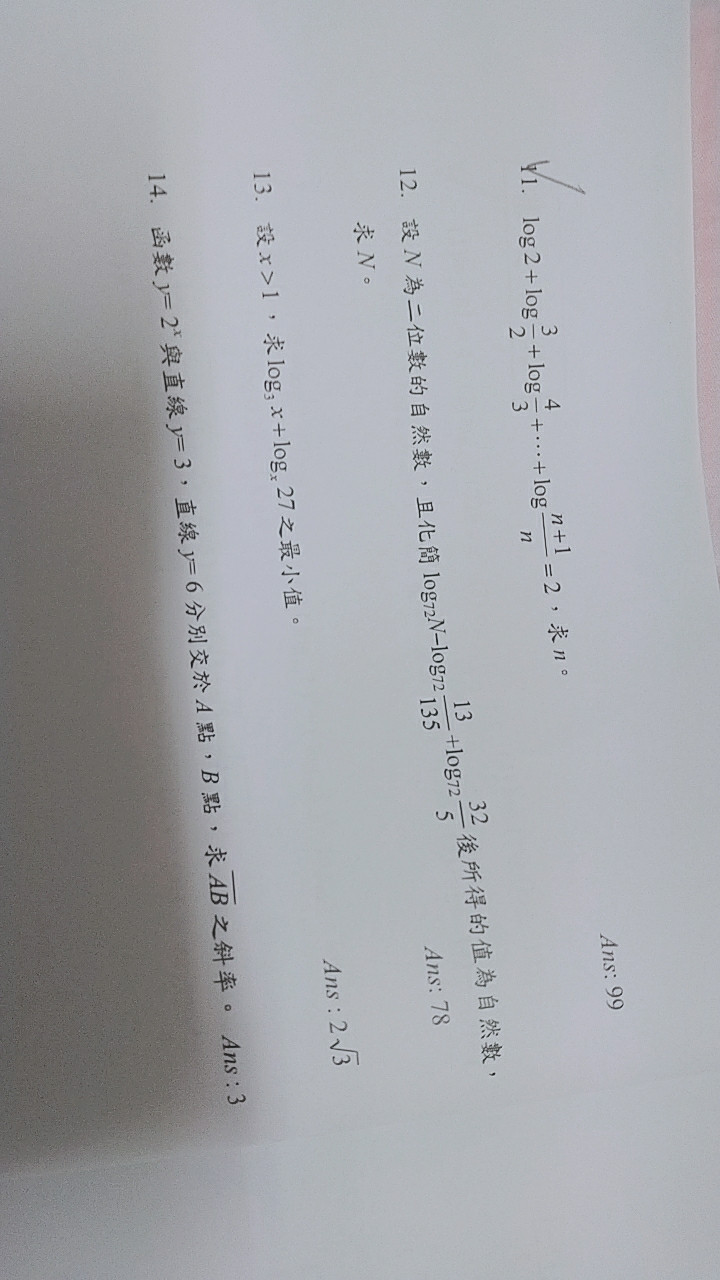 11. log 2 + log 3/2 + log 4/3 + … + log (n+1)/n = 2，求 n。
Ans: 99
12. 設 N 為二位數的自然數，且化簡 log₇₂N−log₇₂ 13/135 +log₇₂ 32/5 後所得的值為自然數，
求 N。
Ans: 78
13. 設 x > 1，求 log₃ x + logₓ 27 之最小值。
Ans : 2√3
14. 函數 y= 2ˣ 與直線 y= 3，直線 y= 6 分別交於 A 點，B 點，求 A̅B̅ 之斜率。 Ans : 3